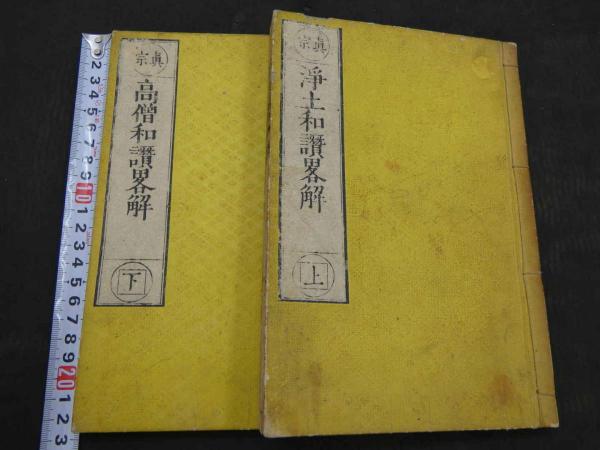 眞宗
淨土和讚畧解
上
眞宗
高僧和讚畧解
下
2 3 4 5 6 7 8 9 10 1 2 3 4 5 6 7 8 9 20 1 2 3